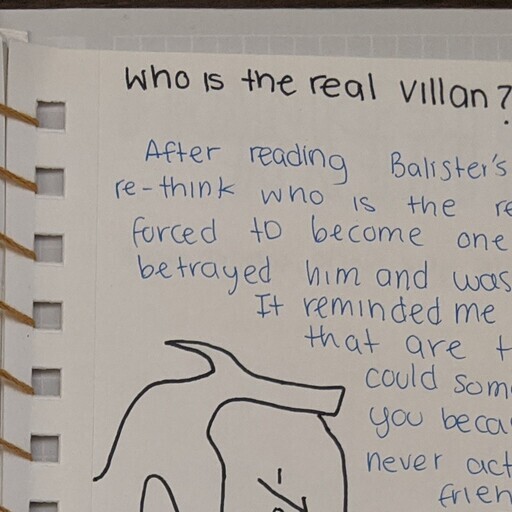 Who is the real villan?
After reading Balister's
re-think who is the
forced to become one
betrayed him and was
It reminded me
that are
could
you
never